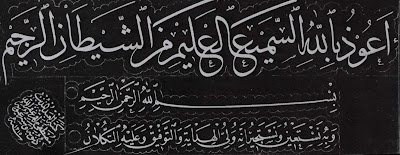 أعوذ بالله السميع العليم من الشيطان الرجيم
بسم الله الرحمن الرحيم
وبه نستعين ولي الهداية والتوفيق عليه التكلان